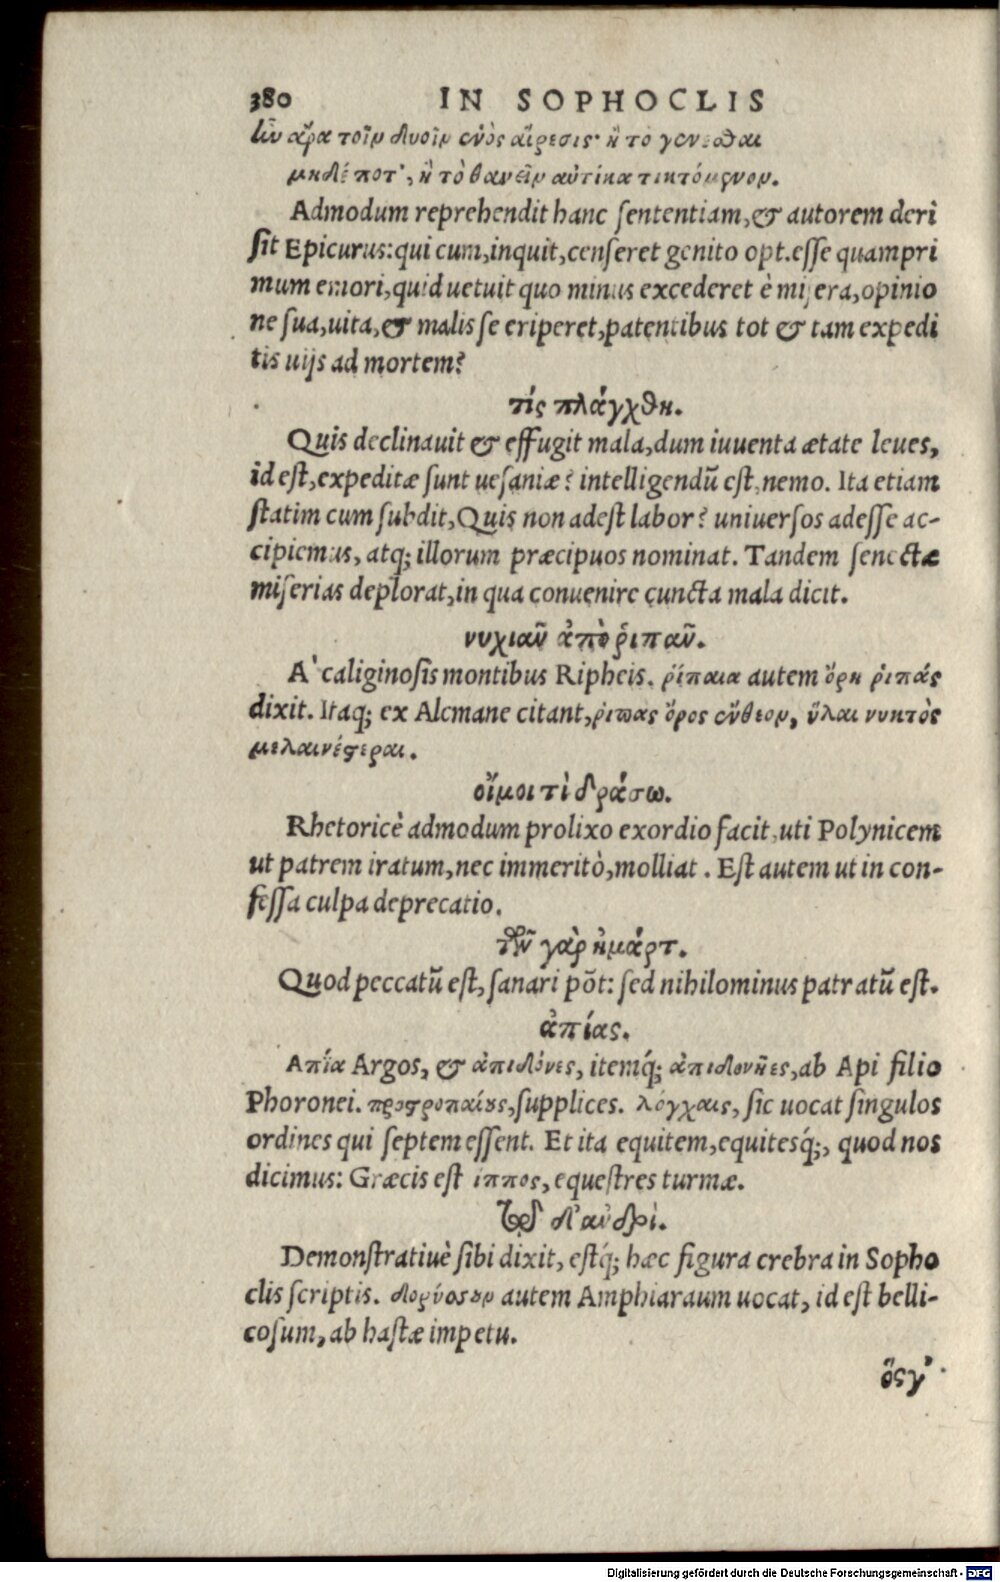 380 IN SOPHOCLIS
ἦν ἄρα τοῖν δυοῖν ἑνὸς αἵρεσις· ἢ τὸ γενέσθαι
μηδέποτ', ἢ τὸ θανεῖν αὐτίκα τικτόμενον.
Admodum reprehendit hanc sententiam,& autorem deri
sit Epicurus:qui cum,inquit,censeret genito opt.esse quampri
mum emori,quid uetuit quo minus excederet è misera,opinio
ne sua,uita,& malis se eriperet,patentibus tot & tam expedi
tis uijs ad mortem?
τίς πλάγχθη.
Quis declinauit & effugit mala,dum iuuenta ætate leues,
id est,expeditæ sunt uesaniæ? intelligendũ est,nemo. Ita etiam
statim cum subdit,Quis non adest labor? uniuersos adesse ac-
cipiemus, atq; illorum præcipuos nominat. Tandem senectæ
miserias deplorat,in qua conuenire cuncta mala dicit.
νυχιᾶν ἀπὸ ῥιπᾶν.
A' caliginosis montibus Ripheis. ῥίπαια autem ὄρη ῥιπάς
dixit. Itaq; ex Alcmane citant,ῥιπας ὄρος ἔνθεον, ὕλαι νυκτὸς
μελαινέστεραι.
οἴμοι τὶ δράσω.
Rhetoricè admodum prolixo exordio facit,uti Polynicem
ut patrem iratum,nec immeritò,molliat . Est autem ut in con-
fessa culpa deprecatio.
τῶν γὰρ ἡμάρτ.
Quod peccatũ est, sanari põt: sed nihilominus patratũ est.
ἀπίας.
Ἀπία Argos, & ἀπιδόνες, itemq́; ἀπιδονῆες,ab Api filio
Phoronei. προστροπαίους,supplices. λόγχαις, sic uocat singulos
ordines qui septem essent. Et ita equitem,equitesq́;, quod nos
dicimus: Græcis est ἱππος, equestres turmæ.
τῷδε δ' ἀνδρὶ.
Demonstratiuè sibi dixit, estq́; hæc figura crebra in Sopho
clis scriptis. δορύσουν autem Amphiaraum uocat, id est belli-
cosum, ab hastæ impetu.
ὅς γ'
Digitalisierung gefördert durch die Deutsche Forschungsgemeinschaft - DFG